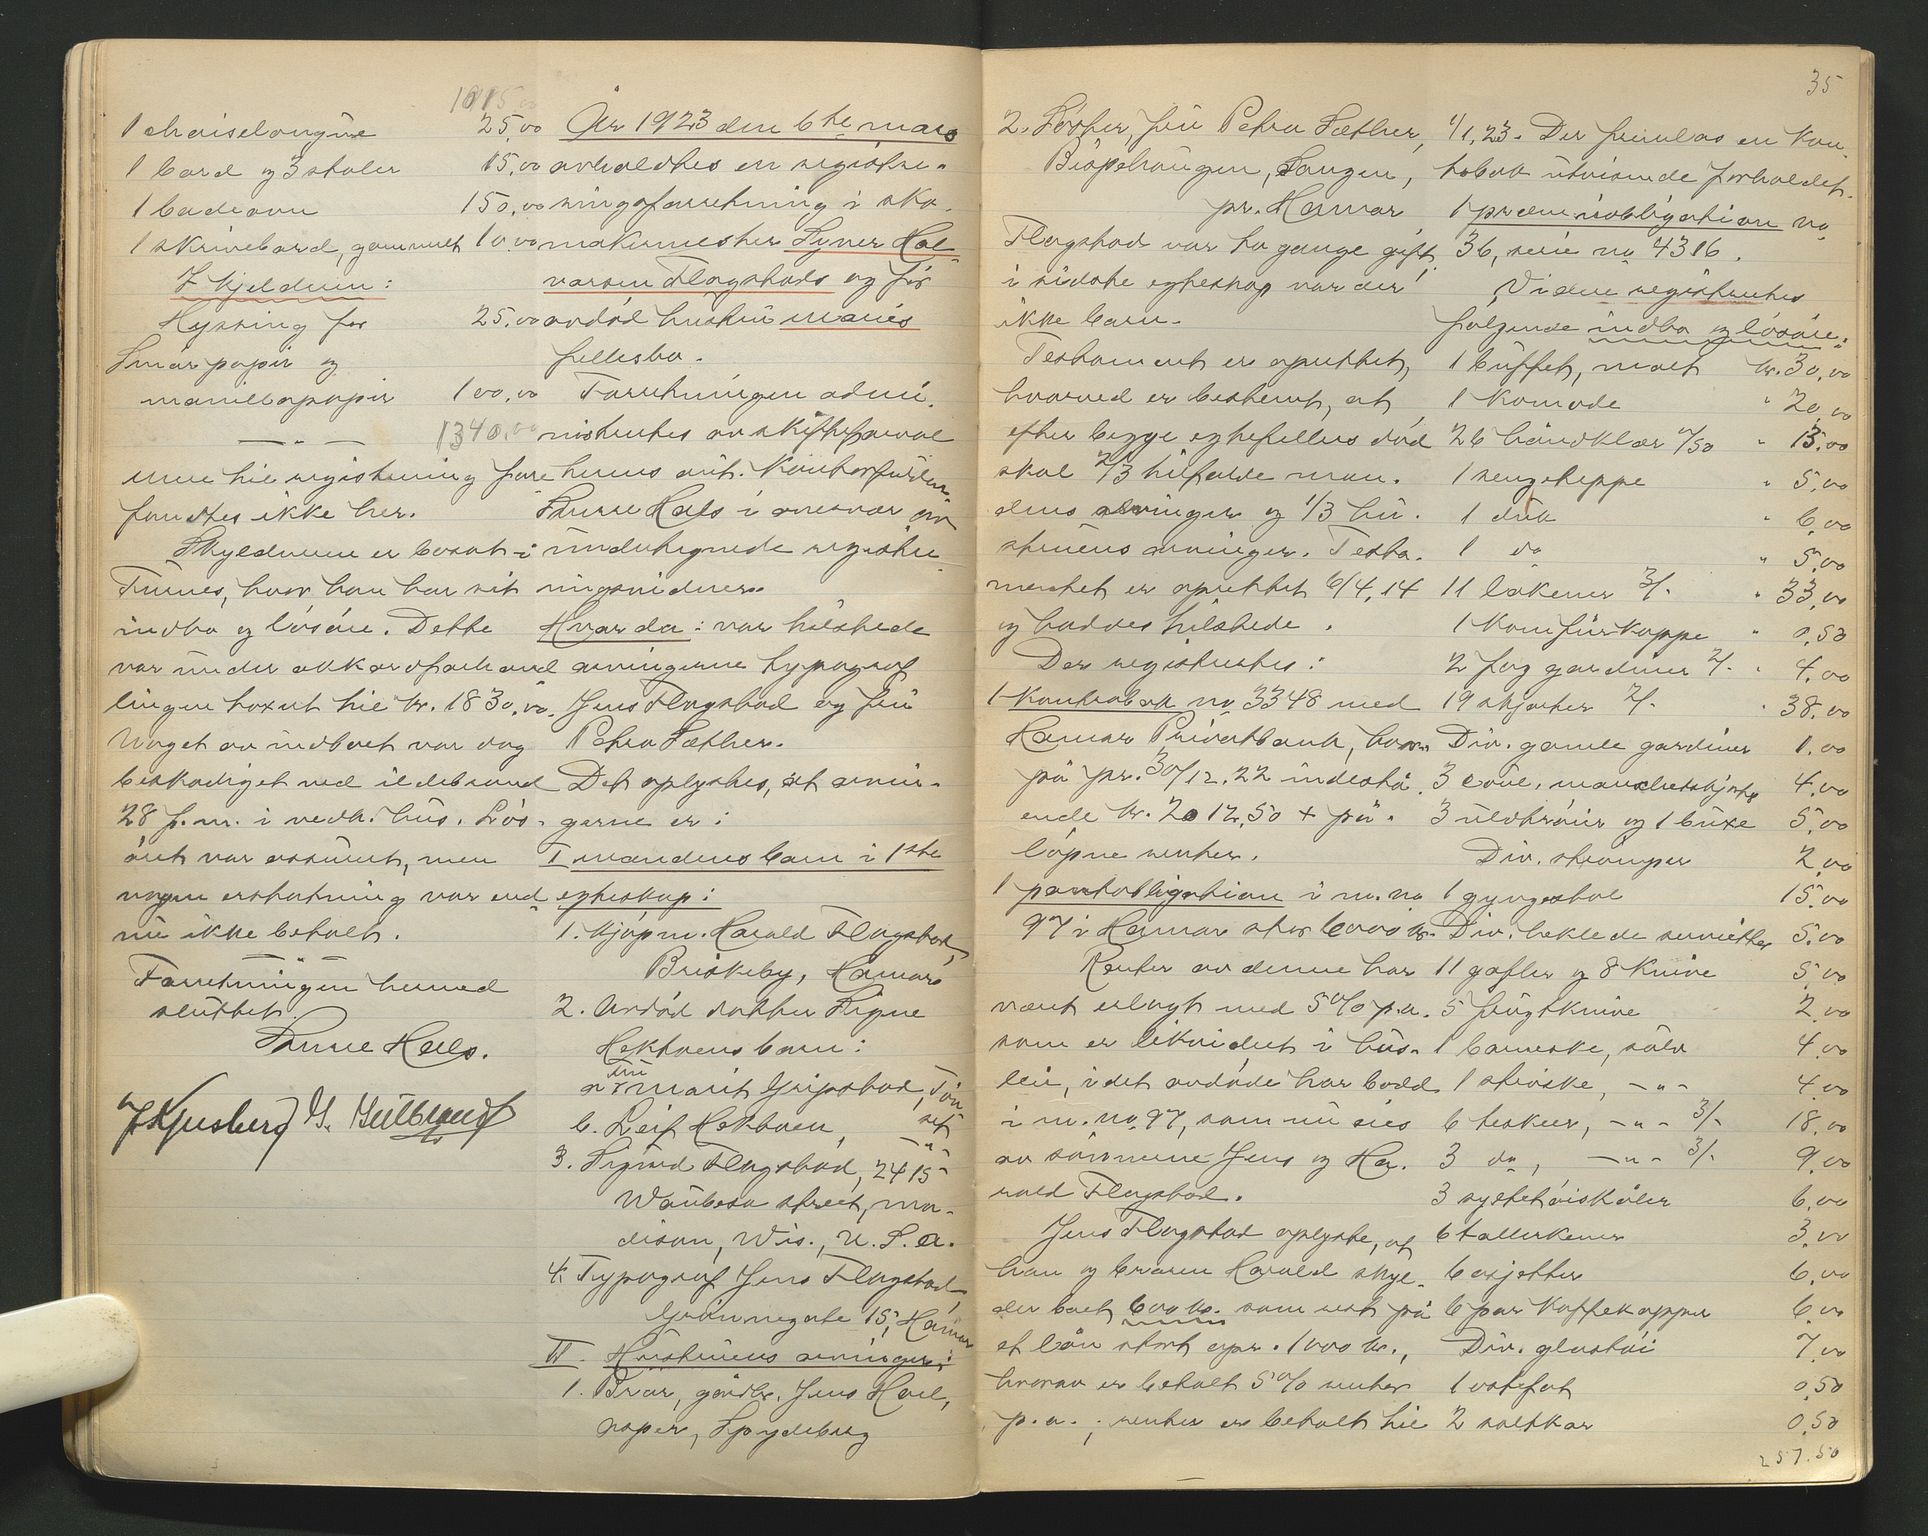 1015,00
1 chaiselongue 25,00
1 bord og 3 stoler 15,00
1 badeovn 150,00
1 skrivebord, gammelt 10,00
I kjelderen:
Hyssing for 25,00
Smørpapir og
manillapapir 100,00
— " — 1340,00
mere til registrering fore
fandtes ikke her.
Skyldneren er bosat i
Furnes, hvor han har sit
indbo og løsøre. Dette
var under akkordforhand
lingen taxert til kr. 1830,00.
Noget av indboet var dog
beskadiget ved ildebrand
28 f.m. i vedk. hus. Løs-
øret var assurert, men
nogen erstatning var end-
nu ikke betalt.
— " —
Forretningen hermed
sluttet.
Thure Hals.
J. Kjusberg G. Gulbrandsen
År 1923 den 6te mars
avholdtes en registre-
ringsforretning i sko-
makermester Syver Hal-
vorsen Flagstads og før
avdød hustru Maries
fellesbo.
Forretningen admi-
nistrertes av skifteforval
terens aut. kontorfuldm.
Thure Hals i overvær av
undertegnede registre
ringsvidner.
Hvorda: var tilstede
arvingerne typograf
Jens Flagstad og fru
Petra Sæther.
Det oplystes, at arvin-
gerne er:
I mandens barn i 1ste
egteskap:
1. kjøpm. Harald Flagstad,
Briskeby, Hamar
2. Avdød datter Signe
Hektoens barn:
a. fru Marit Gripstad, Tøn
set
b. Leif Hektoen, — " —
3. Sigurd Flagstad, 2415
Waubesa street, Ma-
dison, Wis., U.S.A.
4. Typograf Jens Flagstad,
Grønnegate 15, Hamar
II. Hustruens arvinger:
1. Bror, gårdbr. Jens Hael,
naper, Spydeberg
35
2. Søster, fru Petra Sæther,
Bispehaugen, Stangen,
pr. Hamar
Flagstad var to gange gift.
i sidste egteskap var der
ikke barn.
Testament er oprettet,
hvorved er bestemt, at
efter begge egtefellers død
skal 2/3 tilfalde man-
dens arvinger og 1/3 hu-
struens arvinger. Testa-
mentet er oprettet 6/4,14
og hadde tilstede.
Der registrertes:
1 kontrabok no 3348 med
Hamar Privatbank, hvor-
på pr. 30/12.22 indestå-
ende kr. 2012,50 + på-
løpne renter.
1 pantobligation i m. no
97 i Hamar stor 6000 kr.
Renter av denne har
vært erlagt med 5% p.a.
som er likvidert i hus-
leie, idet avdøde har bodd
i m. no. 97, som nu eies
av sønnene Jens og Ha-
rald Flagstad.
Jens Flagstad oplyste, at
han og broren Harald skyl-
der boet 600 kr. som rest på
et lån stort opr. 1000 kr.,
hvorav er betalt 5% renter
p.a.; renter er betalt til
1/1,23. Der fremlas en kon-
trabok utvisende forholdet.
1 premieobligation no
36, serie no 4316.
Videre registrertes
følgende indbo og løsøre:
1 buffet, malt kr. 30,00
1 komode " 20,00
26 håndklær a/50 " 13,00
1 sengeteppe " 5,00
1 duk " 6,00
1 do " 5,00
11 lakener 3/- " 33,00
1 komfurkappe " 0,50
2 fag gardiner 2/- " 4,00
19 skjorter 2/- " 38,00
Div. gamle gardiner 1,00
3 coul. manchetskjorter 4,00
3 uldtrøier og 1 buxe 5,00
Div. strømper 2,00
1 gyngestol 15,00
Div. heklede servietter 5,00
11 gafler og 8 knive 5,00
5 frugtknive 2,00
1 barneske, sølv 4,00
1 strøske, — " — 4,00
6 teskeer, — " — 3/- 18,00
3 do, — " — 3/- 9,00
3 syltetøiskåler 6,00
6 tallerkener 3,00
6 asjetter 6,00
6 par kaffekopper 6,00
Div. glastøi 7,00
1 ostefat 0,50
2 saltkar 0,50
257,50